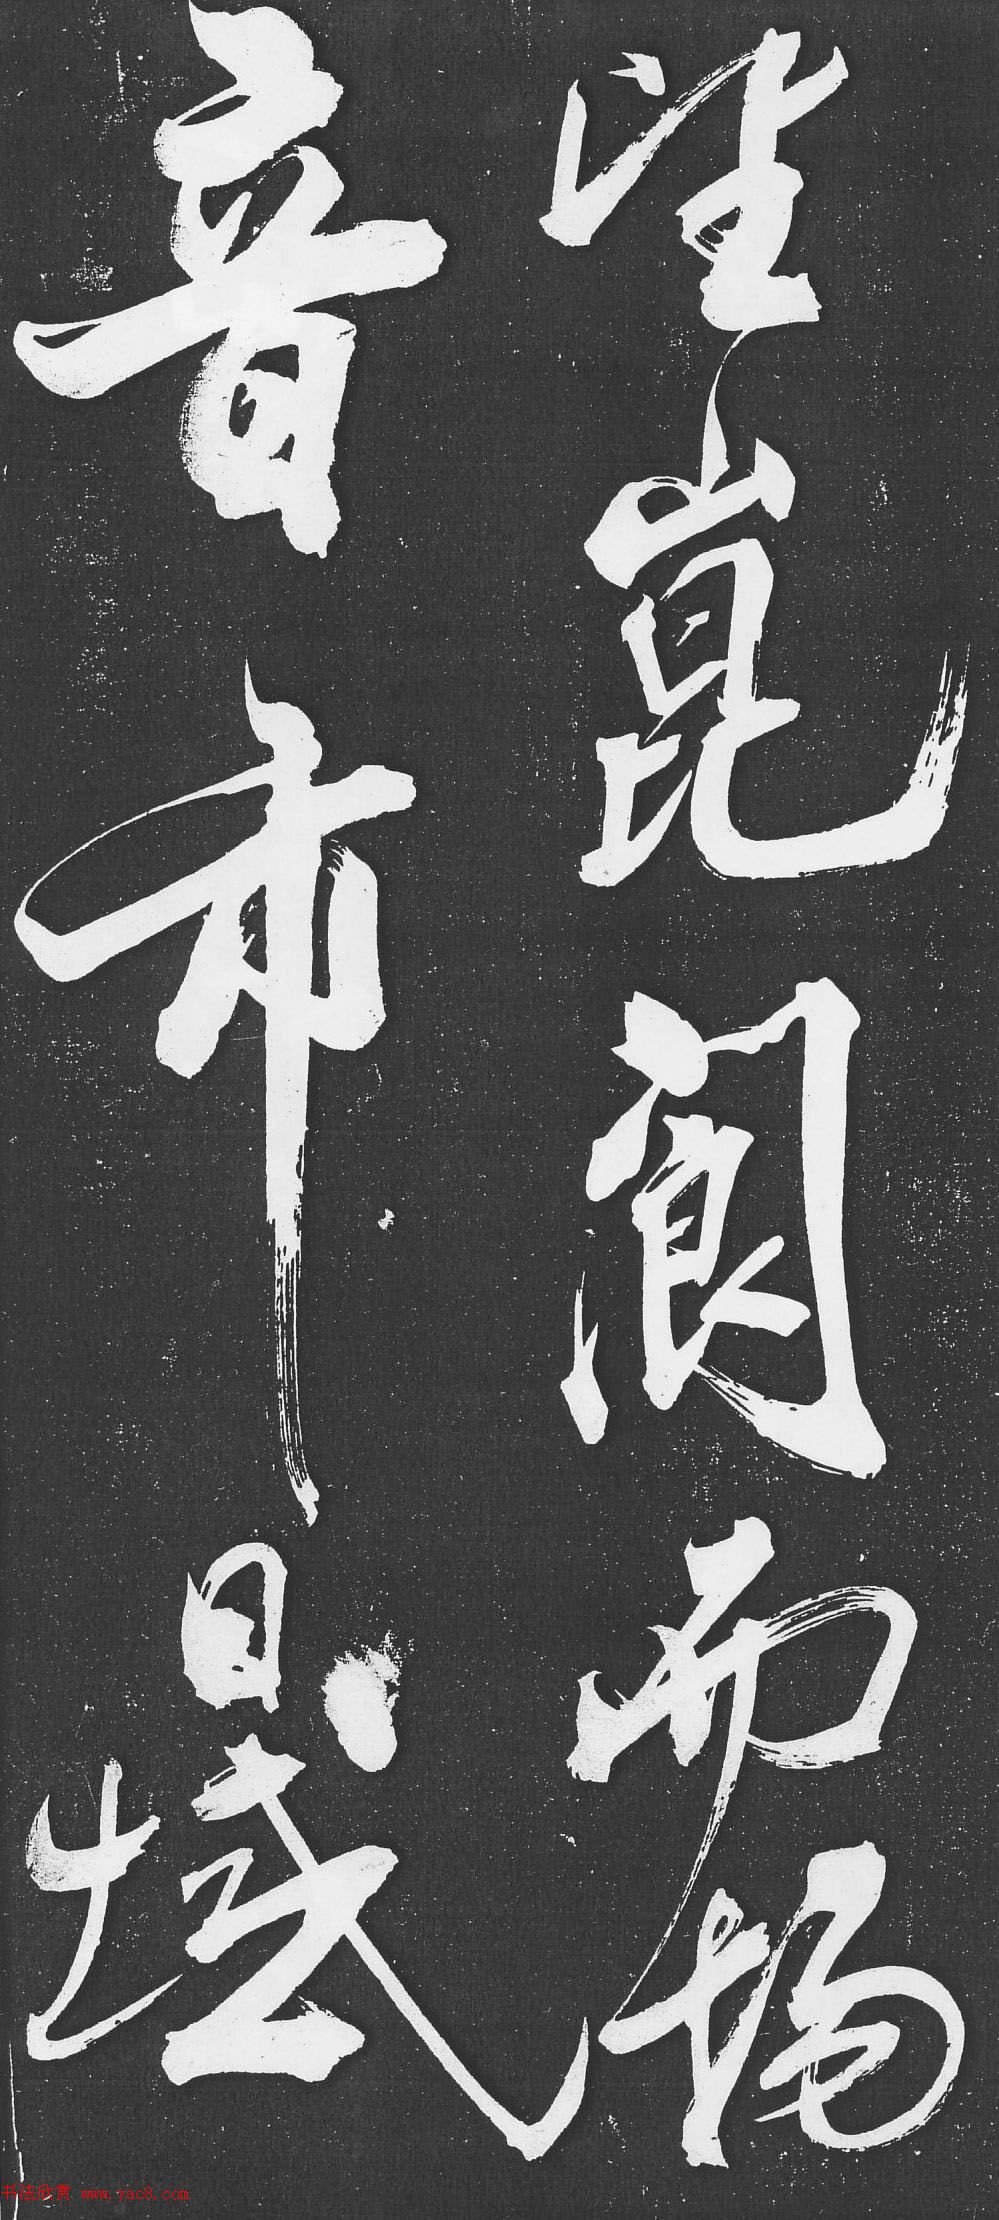 望崑閬而揚
音帀日域
书法欣赏 www.yac8.com